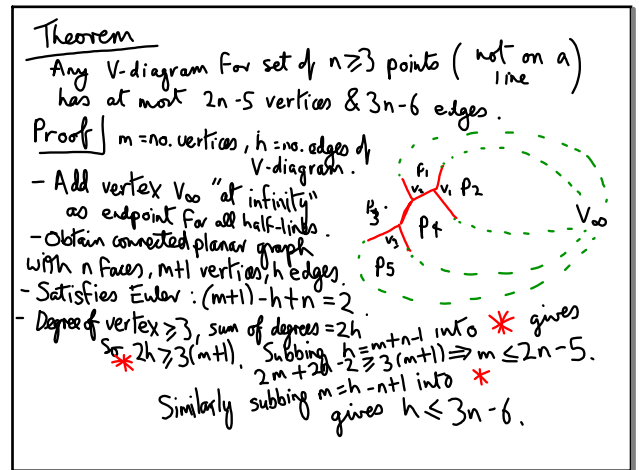 Theorem
Any V-diagram for set of n≥3 points (not on a line)
has at most 2n-5 vertices & 3n-6 edges.
Proof | m = no. vertices, h = no. edges of V-diagram.
- Add vertex V∞ "at infinity"
as endpoint for all half-lines.
- Obtain connected planar graph
with n faces, m+1 vertices, h edges.
- Satisfies Euler : (m+1) - h + n = 2
- Degree of vertex ≥ 3, sum of degrees = 2h
So * 2h ≥ 3(m+1). Subbing h = m+n-1 into * gives
2m + 2n - 2 ≥ 3(m+1) ⇒ m ≤ 2n-5.
Similarly subbing m = h-n+1 into *
gives h ≤ 3n-6.
P1
V2 V1 P2
P3
P4
V3
P5
V∞